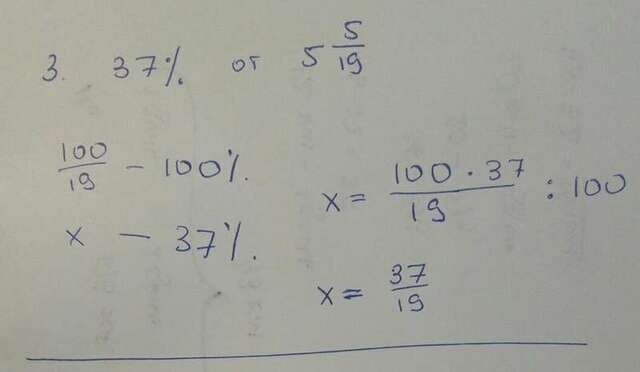 3. 37% от 5 5/19
100/19 – 100%.
x – 37%.
x = 100 · 37/19 : 100
x = 37/19